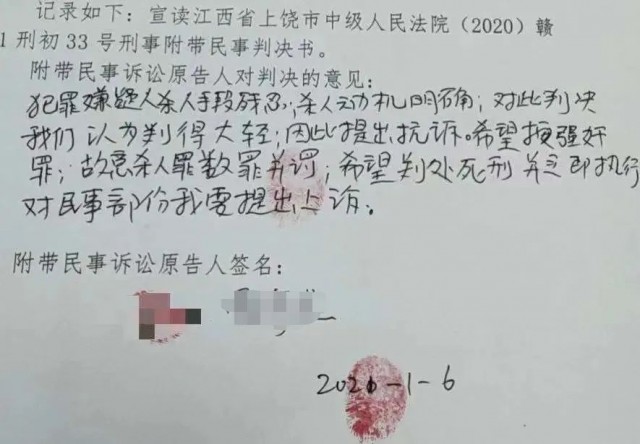 记录如下：宣读江西省上饶市中级人民法院（2020）赣
1刑初33号刑事附带民事判决书。
附带民事诉讼原告人对判决的意见：
犯罪嫌疑人杀人手段残忍，杀人动机明确；对此判决
我们认为判得太轻；因此提出抗诉。希望按强奸
罪；故意杀人罪数罪并罚；希望判处死刑并立即执行
对民事部份我要提出上诉。
附带民事诉讼原告人签名：
2021-1-6